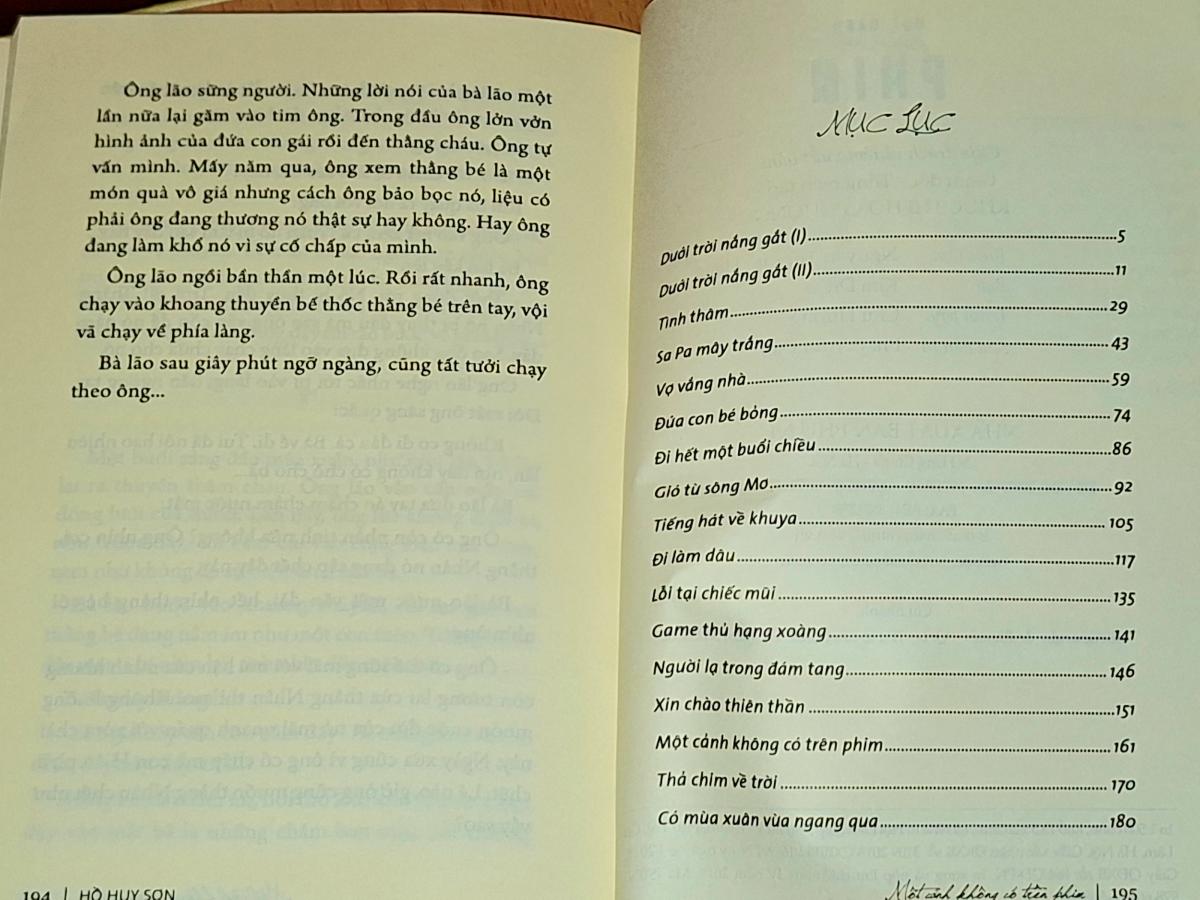 Ông lão sững người. Những lời nói của bà lão một
lần nữa lại găm vào tim ông. Trong đầu ông lởn vởn
hình ảnh của đứa con gái rồi đến thằng cháu. Ông tự
vấn mình. Mấy năm qua, ông xem thằng bé là một
món quà vô giá nhưng cách ông bảo bọc nó, liệu có
phải ông đang thương nó thật sự hay không. Hay ông
đang làm khổ nó vì sự cố chấp của mình.
Ông lão ngồi bần thần một lúc. Rồi rất nhanh, ông
chạy vào khoang thuyền bế thốc thằng bé trên tay, vội
vã chạy về phía làng.
Bà lão sau giây phút ngỡ ngàng, cũng tất tưởi chạy
theo ông...
194 | HỒ HUY SƠN
MỤC LỤC
Dưới trời nắng gắt (I) 5
Dưới trời nắng gắt (II) 11
Tình thâm 29
Sa Pa mây trắng 43
Vợ vắng nhà 59
Đứa con bé bỏng 74
Đi hết một buổi chiều 86
Gió từ sông Mơ 92
Tiếng hát về khuya 105
Đi làm dâu 117
Lỗi tại chiếc mũi 135
Game thủ hạng xoàng 141
Người lạ trong đám tang 146
Xin chào thiên thần 151
Một cảnh không có trên phim 161
Thả chim về trời 170
Có mùa xuân vừa ngang qua 180
Một cảnh không có trên phim | 195